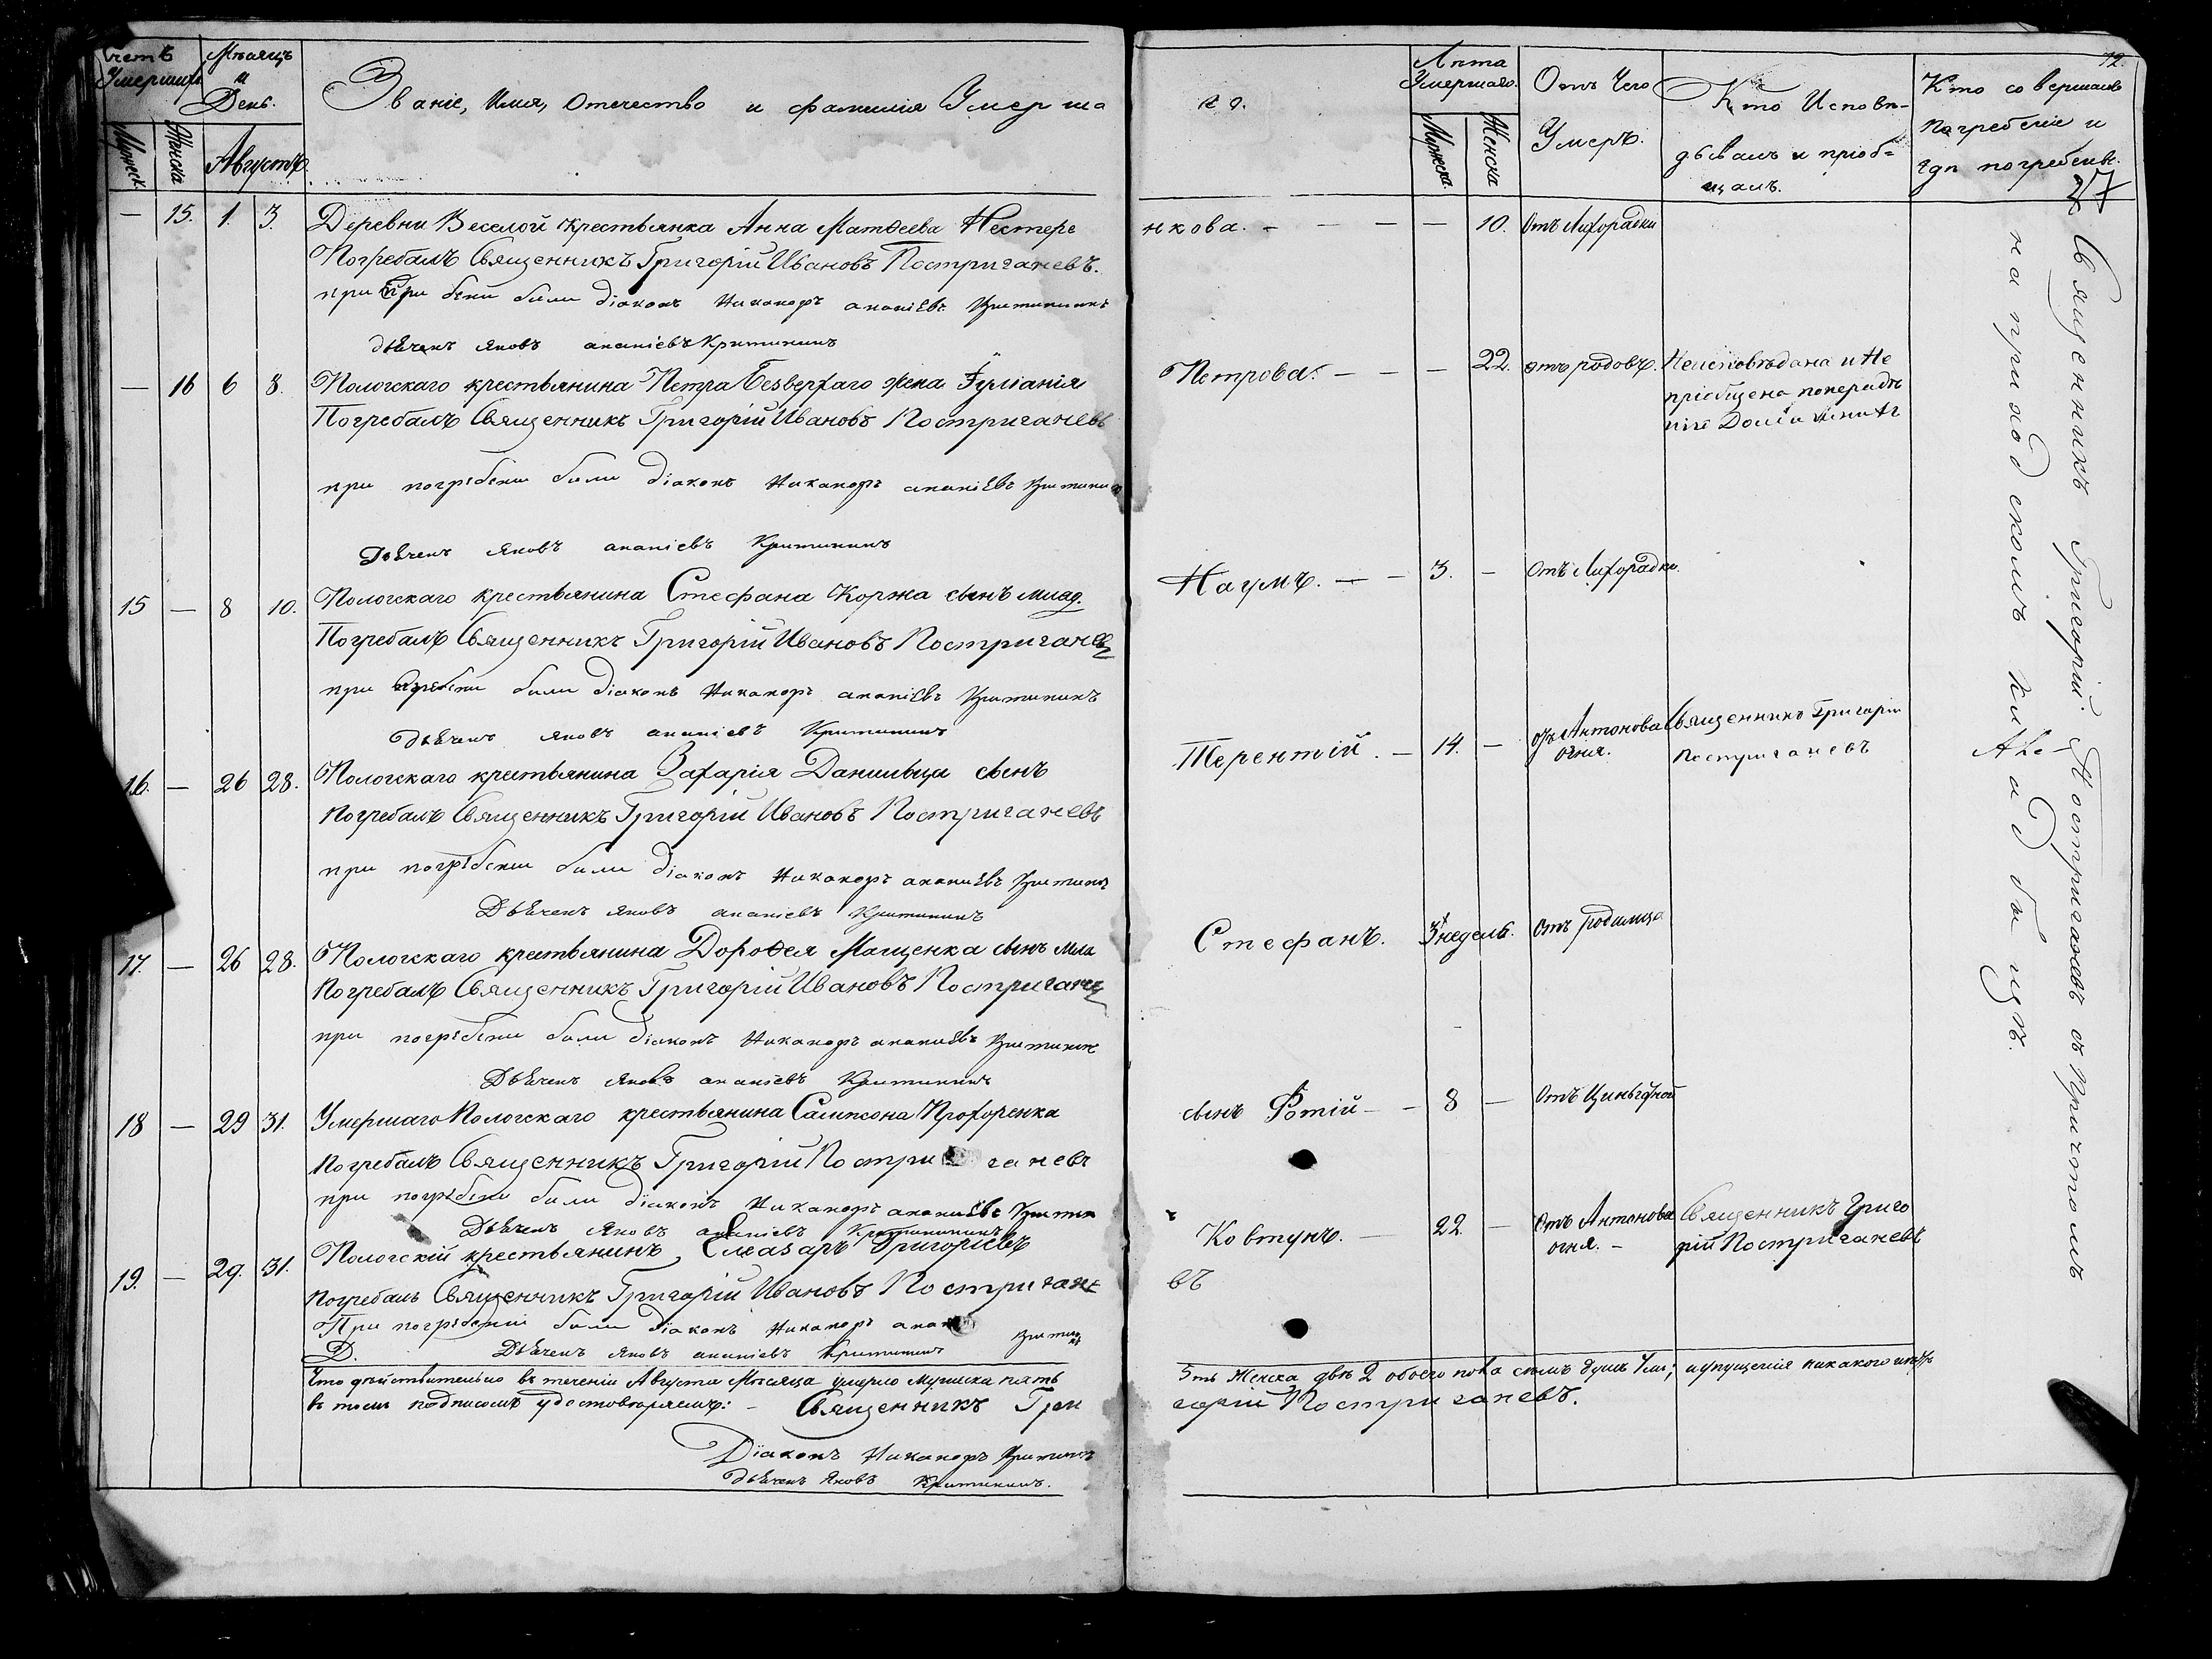 Счетъ Умершихъ
Мѣсяцъ и День.
Званіе, Имя, Отечество и фамилія Умерша
го.
Лѣта Умершаго.
Отъ Чего Умеръ.
Кто Исповѣ-
дывалъ и пріоб-
щалъ.
Кто совершалъ
Погребеніе и
гдѣ погребены.
72.
27
Мужеск.
Женска
Августъ.
Мужеска.
Женска
— 15. 1. 3. Деревни Веселой крестьянка Анна Матѳеева Нестере
нкова. - — — — 10. Отъ Лихорадки
Погребалъ Священникъ Григорій Ивановъ Постриганевъ.
при были діаконъ Никаноръ ананіевъ Критининъ
дьЯчекъ Яковъ ананіевъ Критининъ
— 16 6 8. Пологскаго крестьянина Петра Безверхаго жена Іуліанія
Петрова. — — — 22. отъ родовъ. Неисповѣдана и Не
пріобщена понерадѣ
нію
Погребалъ Священникъ Григорій Ивановъ Постриганевъ
при погребеніи были діаконъ Никаноръ ананіевъ Критининъ
Дьячекъ Яковъ ананіевъ Критининъ
15 — 8 10. Пологскаго крестьянина Стефана Коржа сынъ млад.
Наумъ. — - 3. — Отъ Лихорадки.
Погребалъ Священникъ Григорій Ивановъ Постриганевъ
при были діаконъ Никаноръ ананіевъ Критининъ
дьячекъ Яковъ ананіевъ Критининъ
16. — 26 28. Пологскаго крестьянина Захарія Данильца сынъ
Терентій. — 14. — отъ Антонова огня. Священникъ Григорій
Постриганевъ
Погребалъ Священникъ Григорій Ивановъ Постриганевъ
при погребеніи были діаконъ Никаноръ ананіевъ Критининъ
Дьячекъ Яковъ ананіевъ Критининъ
17. — 26 28. Пологскаго крестьянина Дороѳея Мащенка сынъ мла
Стефанъ. 3 недель. Отъ родимца
Погребалъ Священникъ Григорій Ивановъ Постриганевъ
при погребеніи были діаконъ Никаноръ ананіевъ Критининъ
Дьячекъ Яковъ ананіевъ Критининъ
18 — 29 31. Умершаго Пологскаго крестьянина Сампсона Прохоренка
сынъ Фотій - - 8 — Отъ Цынготной
Погребалъ Священникъ Григорій Постри ганевъ
при погребеніи были діаконъ Никаноръ ананіевъ Критин
Дьячекъ Яковъ ананіевъ Критининъ
19. — 29. 31. Пологскій крестьянинъ Елеазаръ Григоріевъ
Ковтунъ. — 22 — Отъ Антонова огня. - Священникъ Григо
рій Постриганевъ
Погребалъ Священникъ Григорій Ивановъ Постригане
въ
При погребеніи были діаконъ Никаноръ анан Критин
Д. Дьячекъ Яковъ ананіевъ Критининъ
Что дѣйствительно въ теченіи Августа Мѣсяца умерло мужеска пять
5ть Женска двѣ 2 обоего пола семь душъ 7мь; иупущенія никакого нѣтъ
въ томъ подписомъ удостовѣряемъ: - Священникъ Гри
горій Постриганевъ.
Діаконъ Никаноръ Критининъ
дьячекъ Яковъ Критининъ.
Священникъ Григорій Постриганевъ съ Причтомъ
на приходскомъ кладбищѣ.